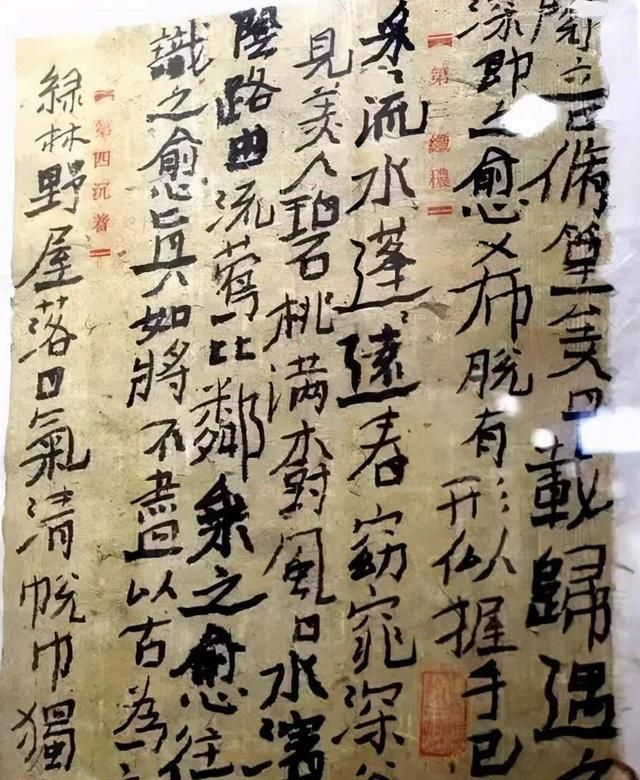 閱音脩篁美曰載歸遇
深即之愈希脱有形似握手已
第三纖穠
采〻流水蓬〻遠春窈窕深
見美人碧桃满樹風日水濱
陰路曲流鶯比鄰乘之愈往
識之愈真如將不盡以古為
第四沉着
綠林野屋落日氣清帨巾獨